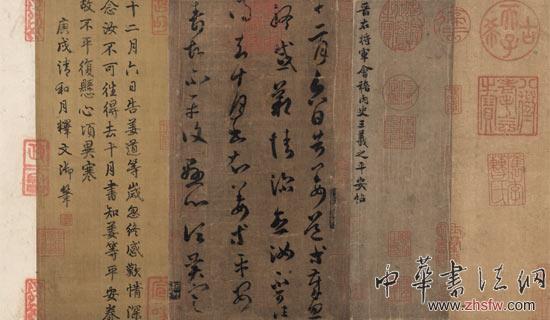 古希天子
晉右將軍會稽内史王羲之平安帖
十二月六日告姜道等歲忽
終感歎情深念汝不可往
得去十月書知姜等平安
壽故不平復懸心頃異寒
十二月六日告姜道等歲忽終感歎情深
念汝不可往得去十月書知姜等平安壽
故不平復懸心頃異寒
庚戌清和月釋文御筆
中华书法网
www.zhsfw.com